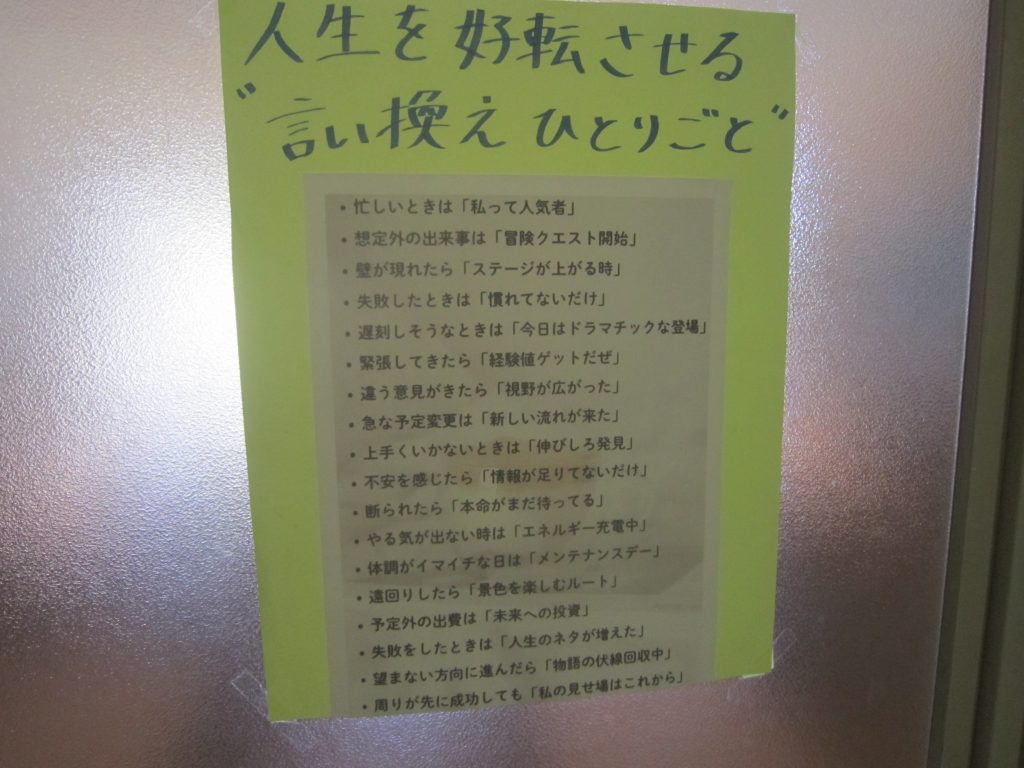 人生を好転させる
"言い換えひとりごと"
・忙しいときは「私って人気者」
・想定外の出来事は「冒険クエスト開始」
・壁が現れたら「ステージが上がる時」
・失敗したときは「慣れてないだけ」
・遅刻しそうなときは「今日はドラマチックな登場」
・緊張してきたら「経験値ゲットだぜ」
・違う意見がきたら「視野が広がった」
・急な予定変更は「新しい流れが来た」
・上手くいかないときは「伸びしろ発見」
・不安を感じたら「情報が足りてないだけ」
・断られたら「本命がまだ待ってる」
・やる気が出ない時は「エネルギー充電中」
・体調がイマイチな日は「メンテナンスデー」
・遠回りしたら「景色を楽しむルート」
・予定外の出費は「未来への投資」
・失敗をしたときは「人生のネタが増えた」
・望まない方向に進んだら「物語の伏線回収中」
・周りが先に成功しても「私の見せ場はこれから」